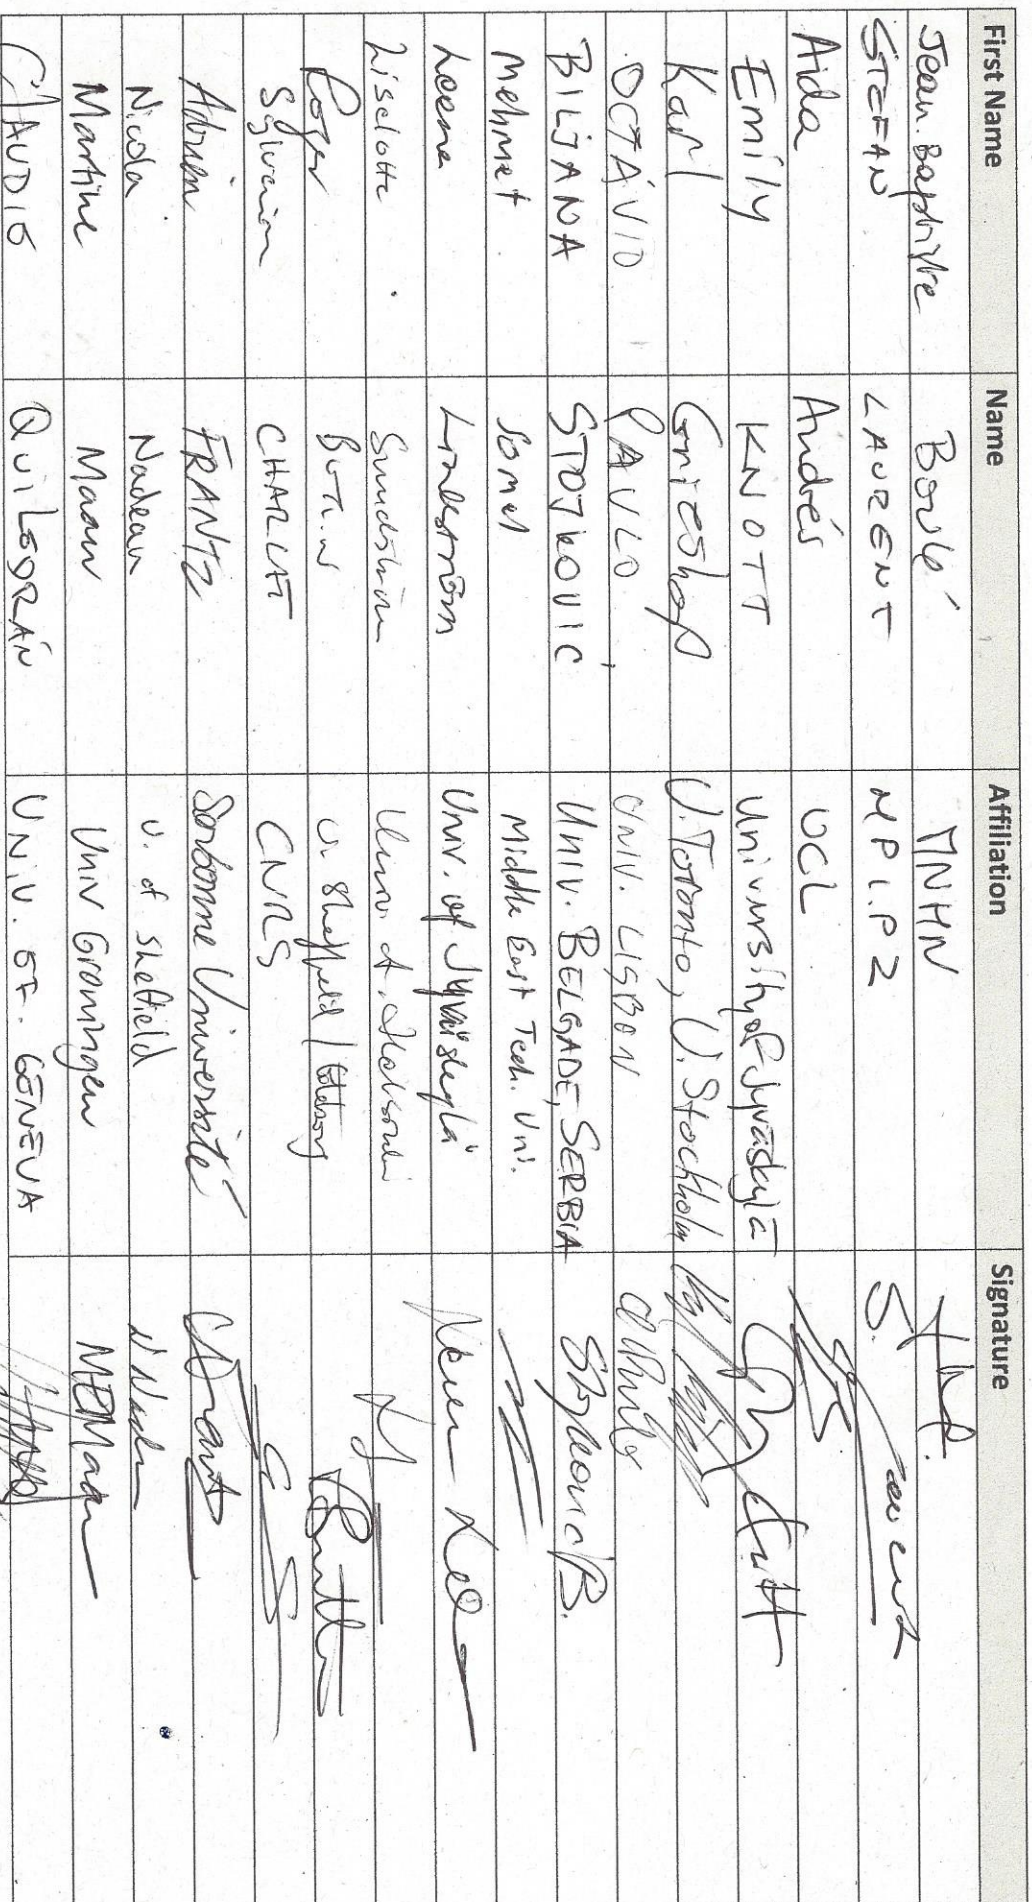 First Name Name Affiliation Signature
Jean-Baptiste Boulé MNHN
STEFAN LAURENT MPIPZ S. Laurent
Aida Andrés UCL
Emily KNOTT University of Jyväskylä
Karl Grieshop U. Toronto, U. Stockholm
OCTÁVIO PAULO UNIV. LISBON
BILJANA STOJKOVIĆ UNIV. BELGADE, SERBIA
Mehmet Somel Middle East Tech. Uni.
Leena Lindström Univ. of Jyväskylä
Liselotte Sundström Univ. of Helsinki
Roger Butlin U. Sheffield /
Sylvain CHARLAT CNRS
Adrien FRANTZ Sorbonne Université
Nicola Nadeau U. of Sheffield
Martine Maan Univ Groningen MEMaan
CLAUDIO QUILODRÁN UNIV. OF. GENEVA